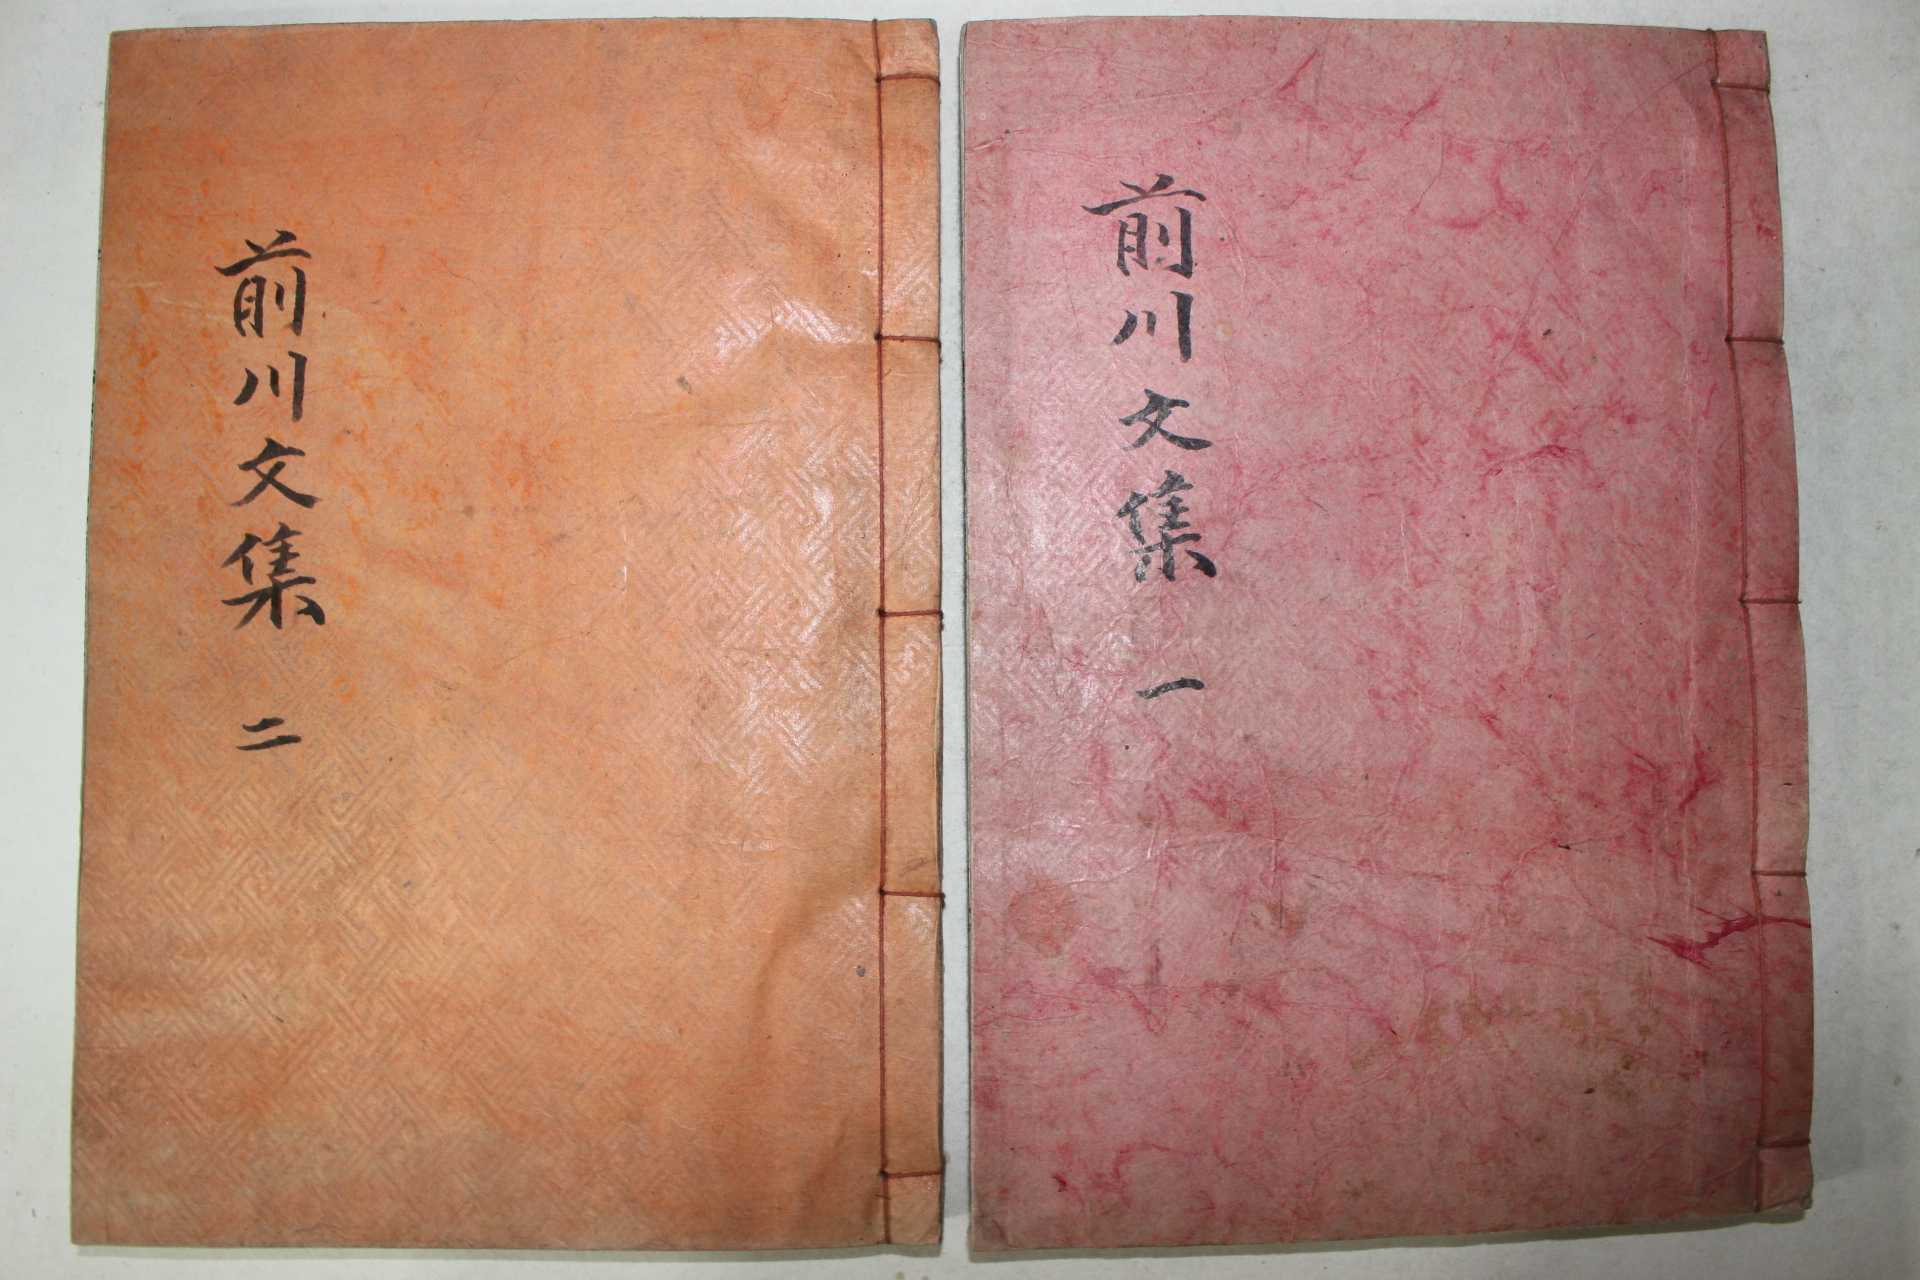 前川文集 一
前川文集 二